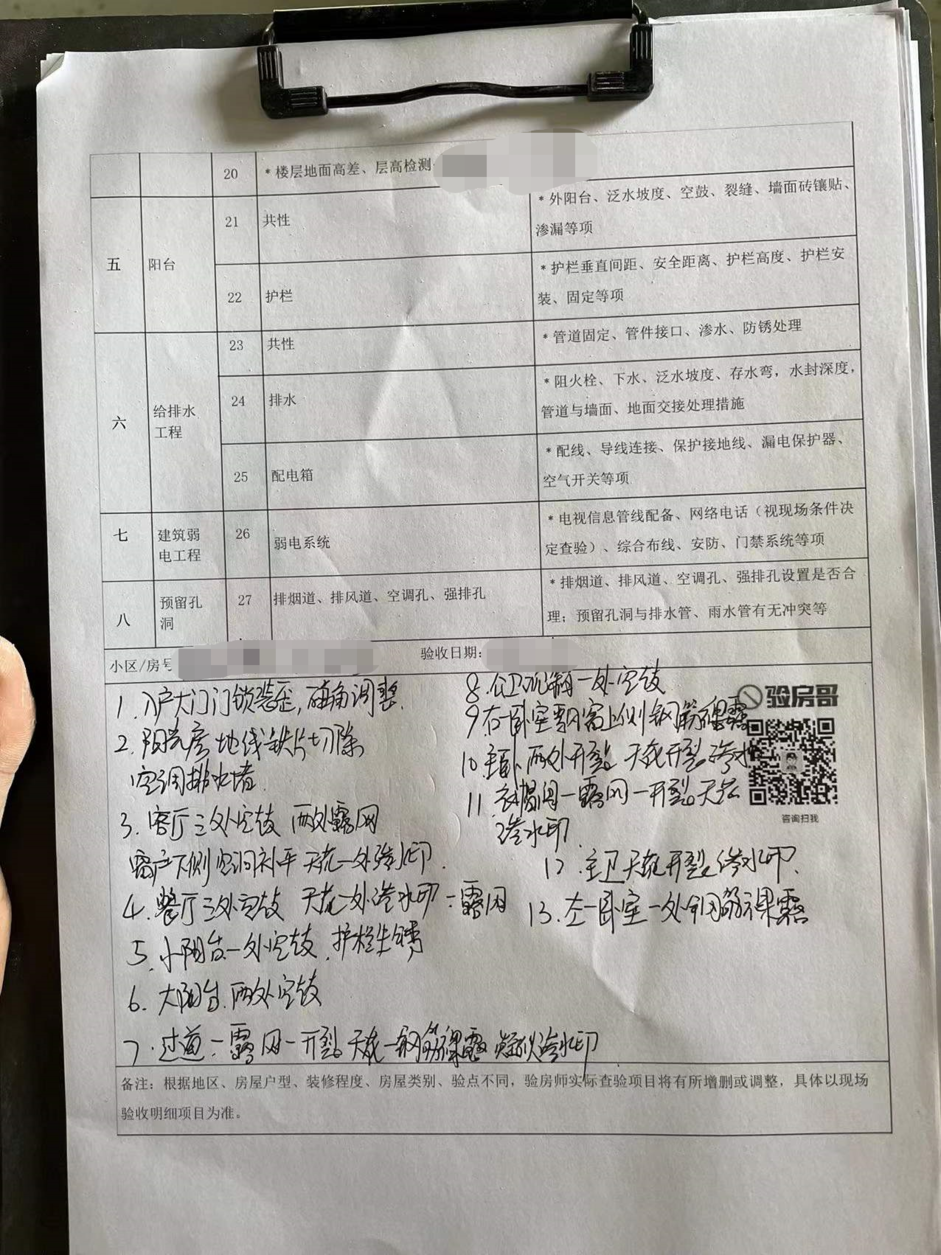 20
* 楼层地面高差、层高检测
五
阳台
21
共性
* 外阳台、泛水坡度、空鼓、裂缝、墙面砖镶贴、
渗漏等项
22
护栏
* 护栏垂直间距、安全距离、护栏高度、护栏安
装、固定等项
六
给排水
工程
23
共性
* 管道固定、管件接口、渗水、防锈处理
24
排水
* 阻火栓、下水、泛水坡度、存水弯，水封深度，
管道与墙面、地面交接处理措施
25
配电箱
* 配线、导线连接、保护接地线、漏电保护器、
空气开关等项
七
建筑弱
电工程
26
弱电系统
* 电视信息管线配备、网络电话（视现场条件决
定查验）、综合布线、安防、门禁系统等项
八
预留孔
洞
27
排烟道、排风道、空调孔、强排孔
* 排烟道、排风道、空调孔、强排孔设置是否合
理；预留孔洞与排水管、雨水管有无冲突等
小区/房号
验收日期:
1. 入户大门门锁装歪, 调整
2. 阳光房 地线铁片切除
空调排水堵
3. 客厅三处空鼓 两处露网
窗户下侧空洞补平 天花一处渗水印.
4. 餐厅三处空鼓 天花一处渗水印 一露网
5. 小阳台一处空鼓. 护栏生锈
6. 大阳台. 两处空鼓
7. 过道一露网一开裂 天花一钢筋裸露 疑似渗水印
8. 公卫 一处空鼓
9. 右一卧室 上侧钢筋裸露
10 主卧 两处开裂 天花开裂 渗水
11. 衣帽间一露网一开裂 天花
渗水印.
12. 主卫天花开裂渗水印.
13. 左一卧室一处钢筋裸露
验房哥
咨询扫我
备注：根据地区、房屋户型、装修程度、房屋类别、验点不同，验房师实际查验项目将有所增删或调整，具体以现场
验收明细项目为准。